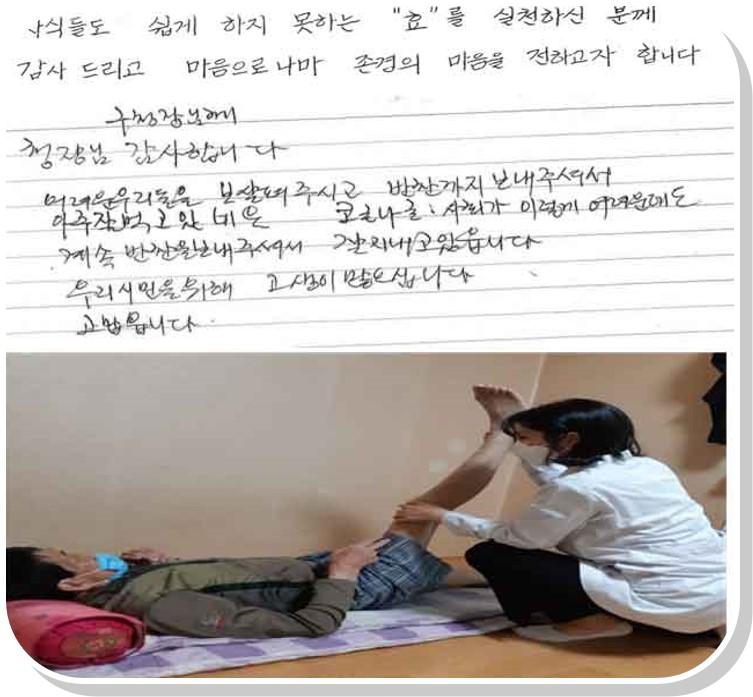 자식들도 쉽게 하지 못하는 "효"를 실천하신 분께
감사 드리고 마음으로나마 존경의 마음을 전하고자 합니다
구청장님께
청장님 감사합니다
어려운우리들을 보살펴 주시고 반찬까지 보내주셔서
아주잘먹고 있 코로나로 사회가 이렇게 어려운데도
계속 반찬을보내주셔서 잘지내고있읍니다
우리시민을위해 고생이 많으십니다
고맙읍니다